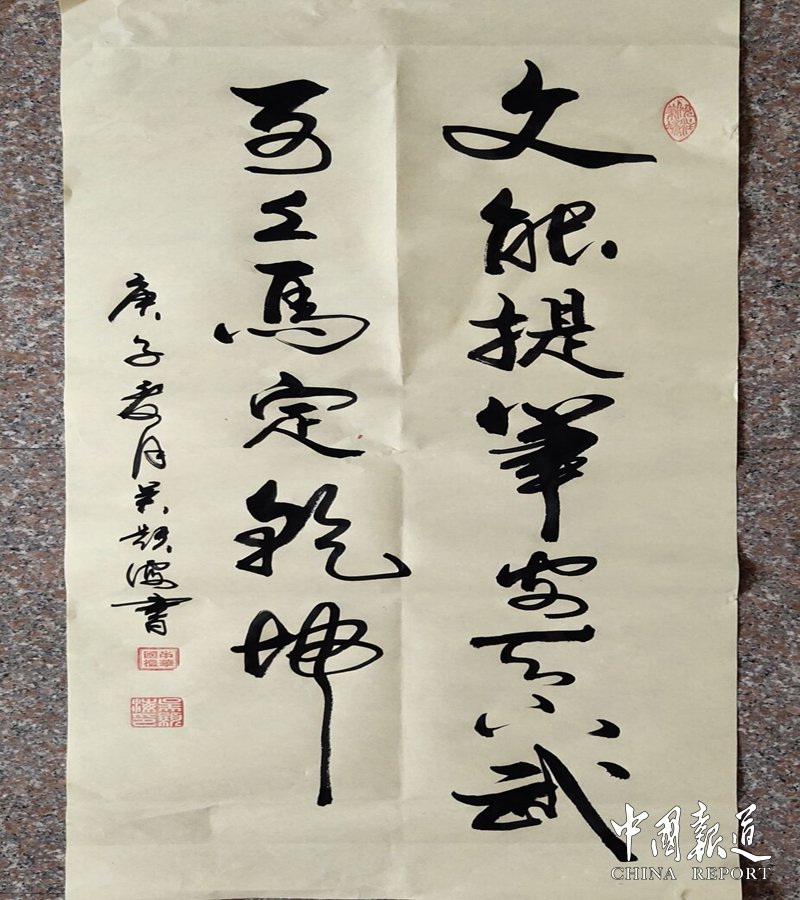 文能提筆安天下武
可上馬定乾坤
庚子月吴書
中國報道
CHINA REPORT